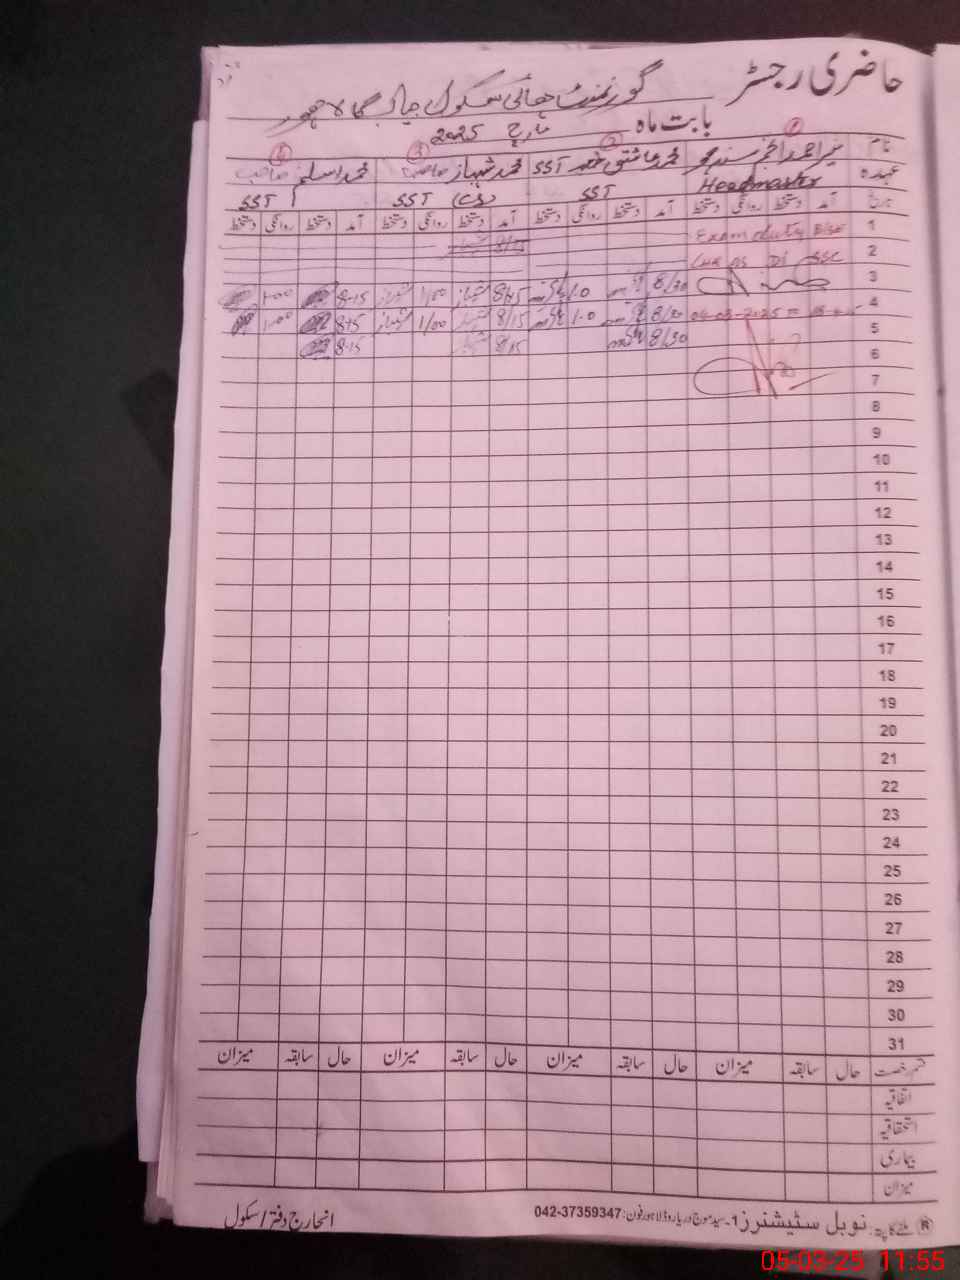 حاضری رجسٹر
گورنمنٹ ہائی سکول جیا بگا لاہور
بابت ماہ مارچ 2025
نام
عہدہ
محمد عاشق SST
محمد شہباز صاحب
محمد اسلم صاحب
Headmaster
SST
SST (CS)
SST
تاریخ آمد دستخط روانگی دستخط آمد دستخط روانگی دستخط آمد دستخط روانگی دستخط آمد دستخط روانگی دستخط
1 Exam duty BISE 8/15
2 DI SSC
3 8/30 8/15 1/00 8-15 1-00
4 8/30 8/15 1/00 8-15 1-00
5 8/30 8/15 8-15
6
7
8
9
10
11
12
13
14
15
16
17
18
19
20
21
22
23
24
25
26
27
28
29
30
31
قسم رخصت حال سابقہ میزان حال سابقہ میزان حال سابقہ میزان حال سابقہ میزان
اتفاقیہ
استحقاقیہ
بیماری
میزان
ملنے کا پتہ: نوبل سٹیشنرز 1-سید موج دریا روڈ لاہور فون: 042-37359347
انچارج دفتر / سکول
05-03-25 11:55